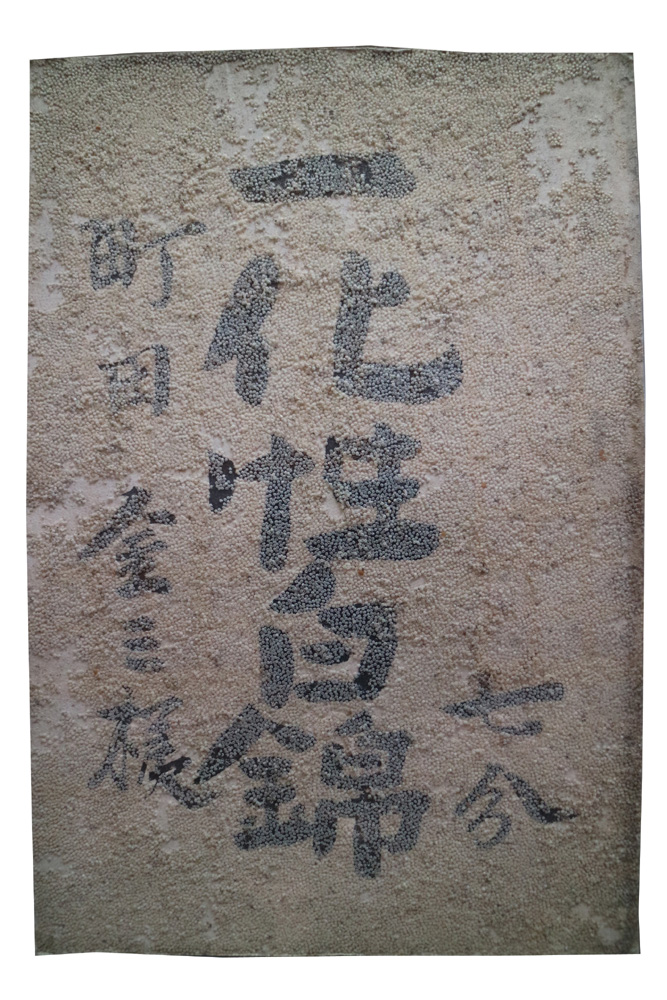 七分
一化性白錦
町田金三様